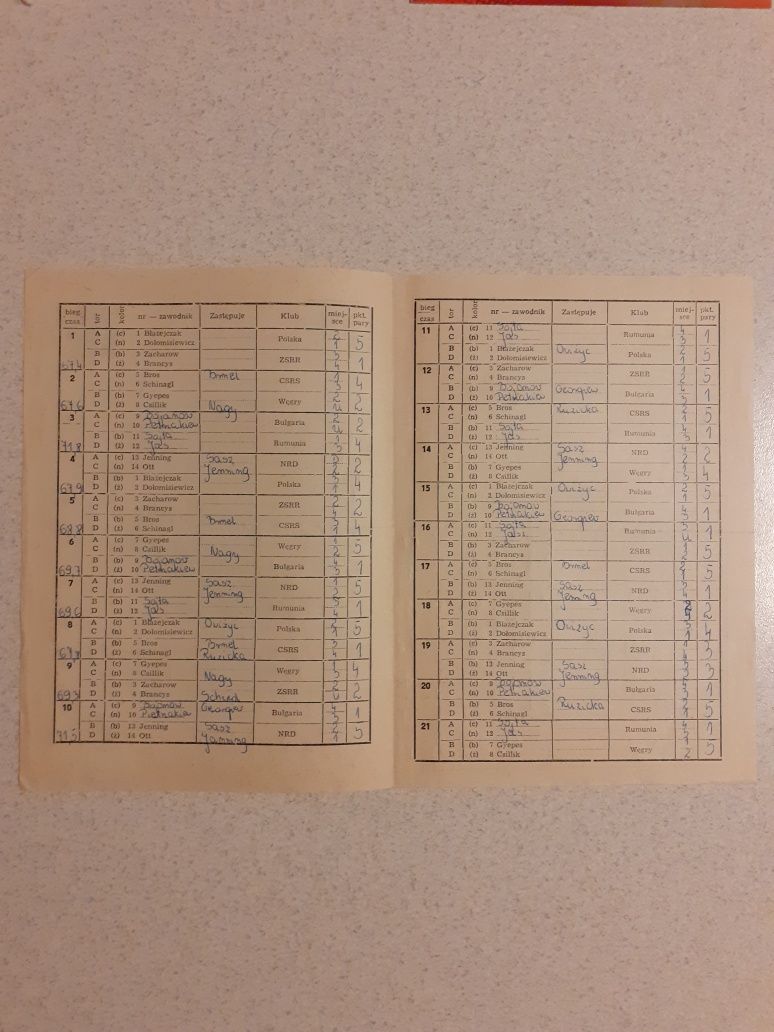 bieg czas tor kolor nr — zawodnik Zastępuje Klub miej- sce pkt. pary
1 A (c) 1 Błażejczak Polska 2 5
C (n) 2 Dołomisiewicz 1
B (b) 3 Zacharow ZSRR 3 1
67,4 D (ż) 4 Brancys 4
2 A (c) 5 Bros Drmel CSRS 1 4
C (n) 6 Schinagl 3
B (b) 7 Gyepes Węgry 2 2
67,6 D (ż) 8 Csillik Nagy u
3 A (c) 9 Bojanow Bułgaria 2 2
C (n) 10 Petnakiew u
B (b) 11 Sojta Rumunia 1 4
71,8 D (ż) 12 3
4 A (c) 13 Jenning Sasz NRD 2
C (n) 14 Ott Jenning
B (b) 1 Błażejczak Polska 1 4
67,9 D (ż) 2 Dołomisiewicz 3
5 A (c) 3 Zacharow ZSRR 2 2
C (n) 4 Brancys
B (b) 5 Bros Drmel CSRS 4
68,8 D (ż) 6 Schinagl
6 A (c) 7 Gyepes Węgry 1 5
C (n) 8 Csillik Nagy 2
B (b) 9 Bojanow Bułgaria 1
69,7 D (ż) 10 Petnakiew
7 A (c) 13 Jenning Sasz NRD 5
C (n) 14 Ott Jenning
B (b) 11 Sojta Rumunia 1
69,6 D (ż) 12
8 A (c) 1 Błażejczak Owiżyc Polska 2 5
C (n) 2 Dołomisiewicz 1
B (b) 5 Bros Drmel CSRS 3 1
D (ż) 6 Schinagl Ruzicka 4
9 A (c) 7 Gyepes Węgry 4
C (n) 8 Csillik Nagy
B (b) 3 Zacharow ZSRR 2 2
69,3 D (ż) 4 Brancys
10 A (c) 9 Bojanow Georgiew Bułgaria 4 1
C (n) 10 Petnakiew 3
B (b) 13 Jenning Sasz NRD 2 5
71,5 D (ż) 14 Ott Jenning 1
bieg czas tor kolor nr — zawodnik Zastępuje Klub miej- sce pkt. pary
11 A (c) 11 Sojta Rumunia 4 1
C (n) 12 3
B (b) 1 Błażejczak Owiżyc Polska 2 5
D (ż) 2 Dołomisiewicz 1
12 A (c) 3 Zacharow ZSRR 1 5
C (n) 4 Brancys 2
B (b) 9 Bojanow Georgiew Bułgaria 4 1
D (ż) 10 Petnakiew 3
13 A (c) 5 Bros Ruzicka CSRS 2 5
C (n) 6 Schinagl 1
B (b) 11 Sojta Rumunia 4 1
D (ż) 12 3
14 A (c) 13 Jenning Sasz NRD 4 2
C (n) 14 Ott Jenning 2
B (b) 7 Gyepes Węgry 1 4
D (ż) 8 Csillik 3
15 A (c) 1 Błażejczak Owiżyc Polska 2 5
C (n) 2 Dołomisiewicz 1
B (b) 9 Bojanow Bułgaria 4 1
D (ż) 10 Petnakiew Georgiew 3
16 A (c) 11 Sojta Rumunia 3 1
C (n) 12 u
B (b) 3 Zacharow ZSRR 1 5
D (ż) 4 Brancys 2
17 A (c) 5 Bros Drmel CSRS 2 5
C (n) 6 Schinagl 1
B (b) 13 Jenning Sasz NRD 4 1
D (ż) 14 Ott Jenning 3
18 A (c) 7 Gyepes Węgry 2
C (n) 8 Csillik
B (b) 1 Błażejczak Owiżyc Polska 3 4
D (ż) 2 Dołomisiewicz 1
19 A (c) 3 Zacharow ZSRR 1 3
C (n) 4 Brancys 4
B (b) 13 Jenning Sasz NRD 3
D (ż) 14 Ott Jenning
20 A (c) 9 Bojanow Bułgaria 4 1
C (n) 10 Petnakiew 3
B (b) 5 Bros Ruzicka CSRS 2 5
D (ż) 6 Schinagl 1
21 A (c) 11 Sojta Rumunia 4 1
C (n) 12 3
B (b) 7 Gyepes Węgry 1 5
D (ż) 8 Csillik 2